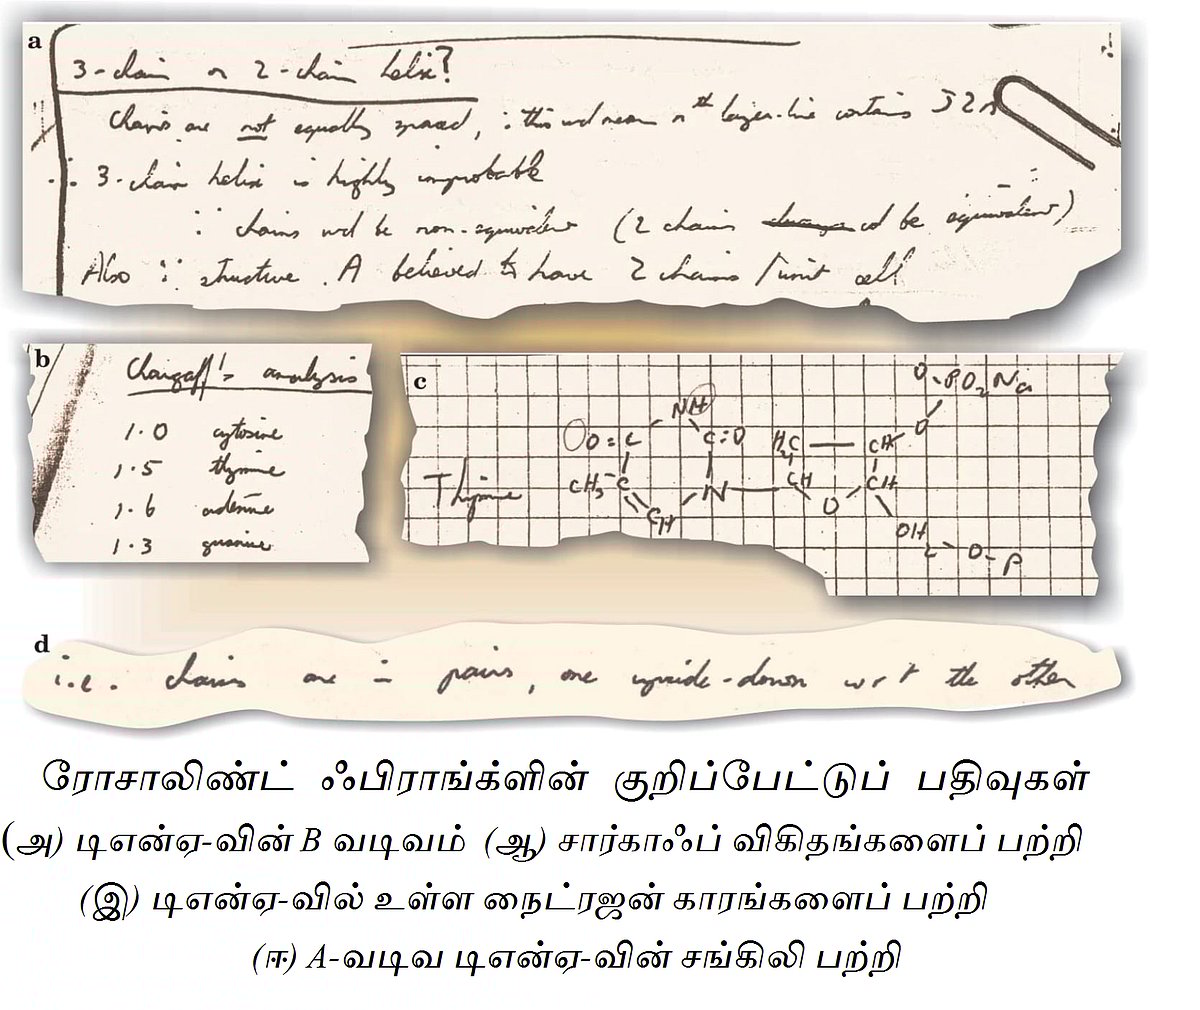 a
3-chain or 2-chain helix?
Chains are not equally spaced, ∵ this wd mean nth layer-line contains J2n
∴ 3-chain helix is highly improbable
∵ chains wd be non-equivalent (2 chains cd be equivalent)
Also ∵ structure A believed to have 2 chains / unit cell
b
Chargaff's analysis
1.0 cytosine
1.5 thymine
1.6 adenine
1.3 guanine
c
O-PO2Na
NH
O=C C=O H2C CH O
Thymine CH3 C N CH O CH
CH
OH
O-P
d
i.e. chains are in pairs, one upside-down wrt the other
ரோசாலிண்ட் ஃபிராங்க்ளின் குறிப்பேட்டுப் பதிவுகள்
(அ) டிஎன்ஏ-வின் B வடிவம் (ஆ) சார்காஃப் விகிதங்களைப் பற்றி
(இ) டிஎன்ஏ-வில் உள்ள நைட்ரஜன் காரங்களைப் பற்றி
(ஈ) A-வடிவ டிஎன்ஏ-வின் சங்கிலி பற்றி